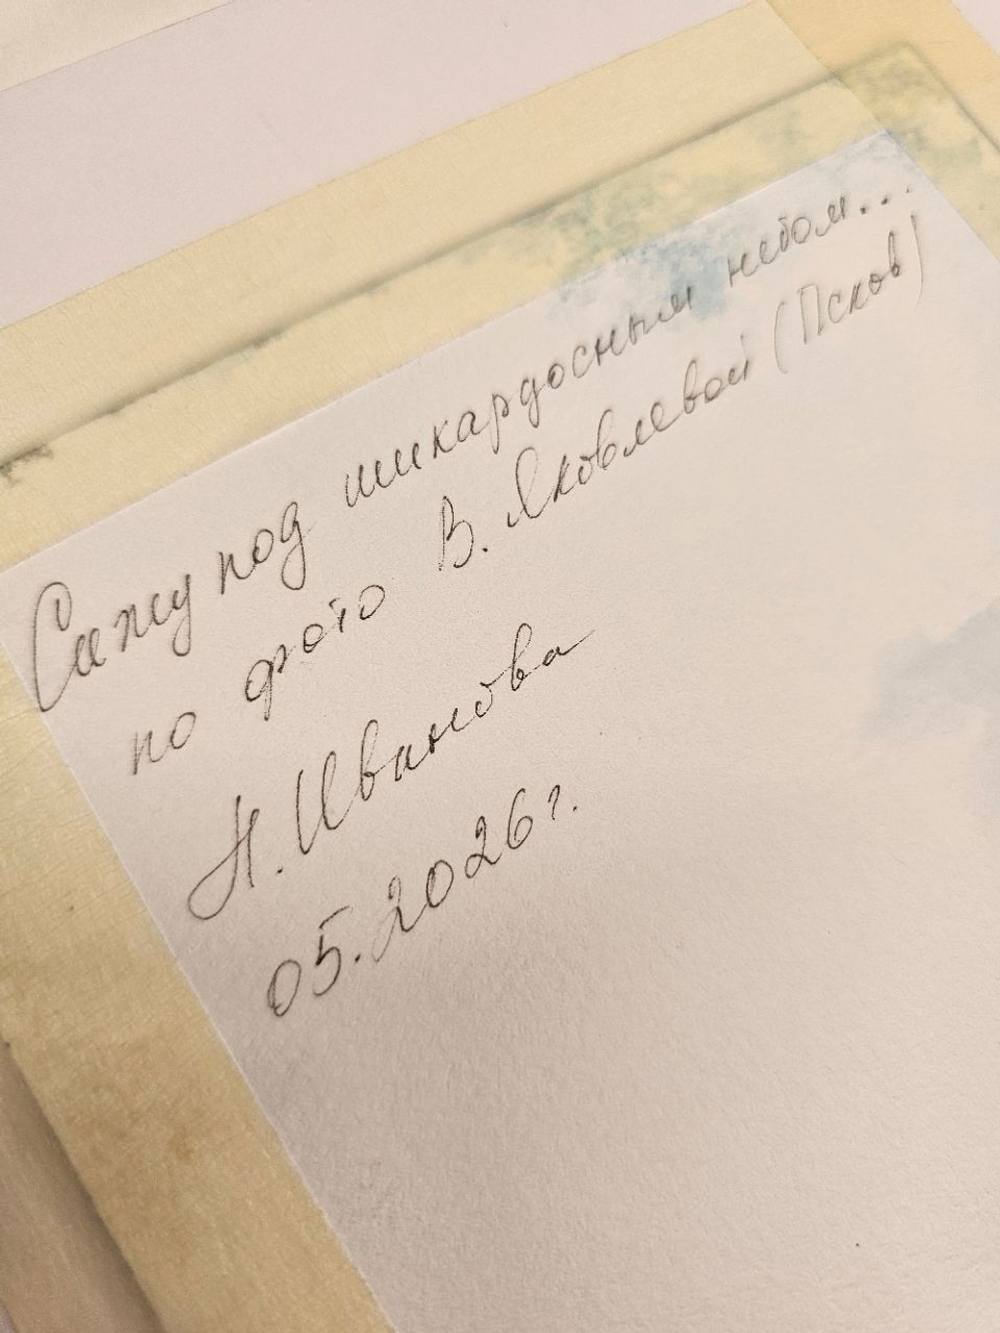 Сижу под шикардосным небом...
по фото В. Яковлевой (Псков)
Н. Иванова
05.2026г.